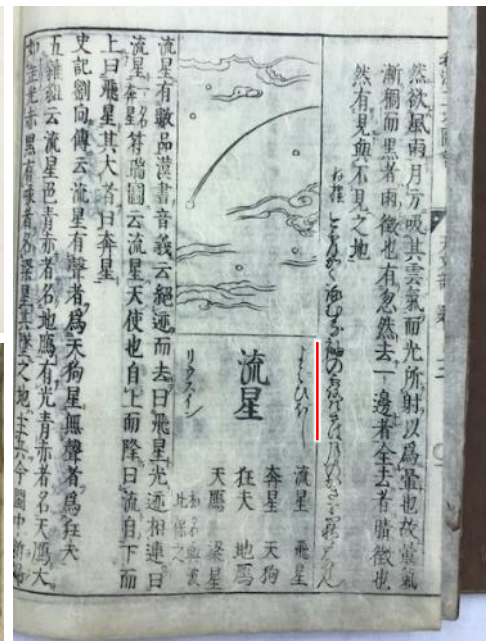 然欲風雨月方吸其雲氣而光所射以爲暈也故暈氣
漸稠而黒者雨徴也有忽然去一邊者全去者晴徴也
然有見與不見之地
よばひぼし
流星
リウスイン
流星 飛星
奔星 天狗
狂夫 地鴈
天鴈 梁星
和名與波
比保之
流星有數品漢書音義云絶迹而去曰飛星光迹相連曰
流星一名奔星符瑞圖云流星天使也自上而降曰流自下而
上曰飛星其大者曰奔星
史記劉向傳云流星有聲者爲天狗星無聲者爲狂夫
五雜組云流星色青赤者名地鴈有光青赤者名天鴈大
光赤黒有喙者名梁星其墜之地主兵今